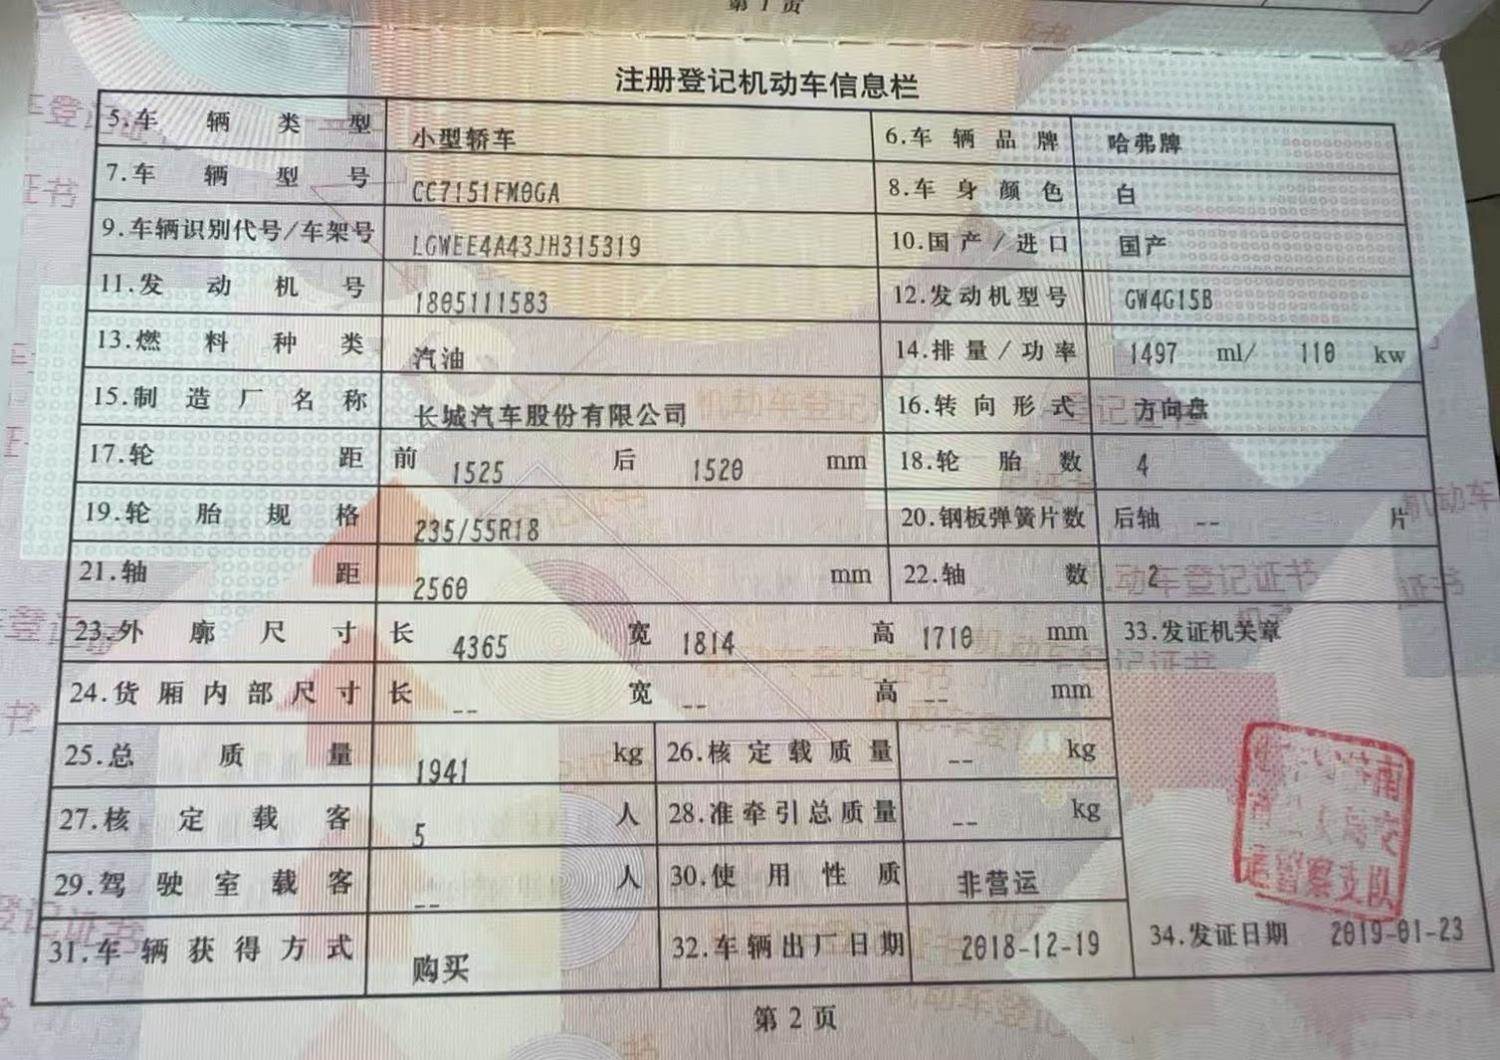 第1页
注册登记机动车信息栏
5.车辆类型 小型轿车 6.车辆品牌 哈弗牌
7.车辆型号 CC7151FM0GA 8.车身颜色 白
9.车辆识别代号/车架号 LGWEE4A43JH315319 10.国产/进口 国产
11.发动机号 1805111583 12.发动机型号 GW4G15B
13.燃料种类 汽油 14.排量/功率 1497 ml/ 110 kw
15.制造厂名称 长城汽车股份有限公司 16.转向形式 方向盘
17.轮距 前 1525 后 1520 mm 18.轮胎数 4
19.轮胎规格 235/55R18 20.钢板弹簧片数 后轴 -- 片
21.轴距 2560 mm 22.轴数 2
23.外廓尺寸 长 4365 宽 1814 高 1710 mm 33.发证机关章
24.货厢内部尺寸 长 -- 宽 -- 高 -- mm
25.总质量 1941 kg 26.核定载质量 -- kg
27.核定载客 5 人 28.准牵引总质量 -- kg
29.驾驶室载客 -- 人 30.使用性质 非营运
31.车辆获得方式 购买 32.车辆出厂日期 2018-12-19 34.发证日期 2019-01-23
第2页